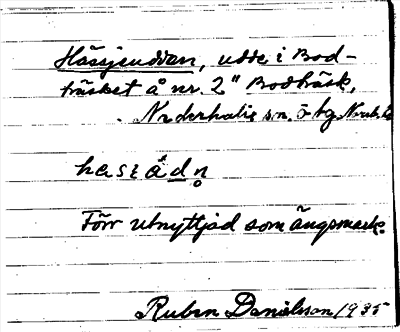 Hässjeudden, udde i Bod-
träsket å nr. 2 " Bodträsk,
Nederkalix sn. ö-tg
hasɛ̊dn̥
Förr utnyttjad som ängsmark.
Ruben Danielsson 1935